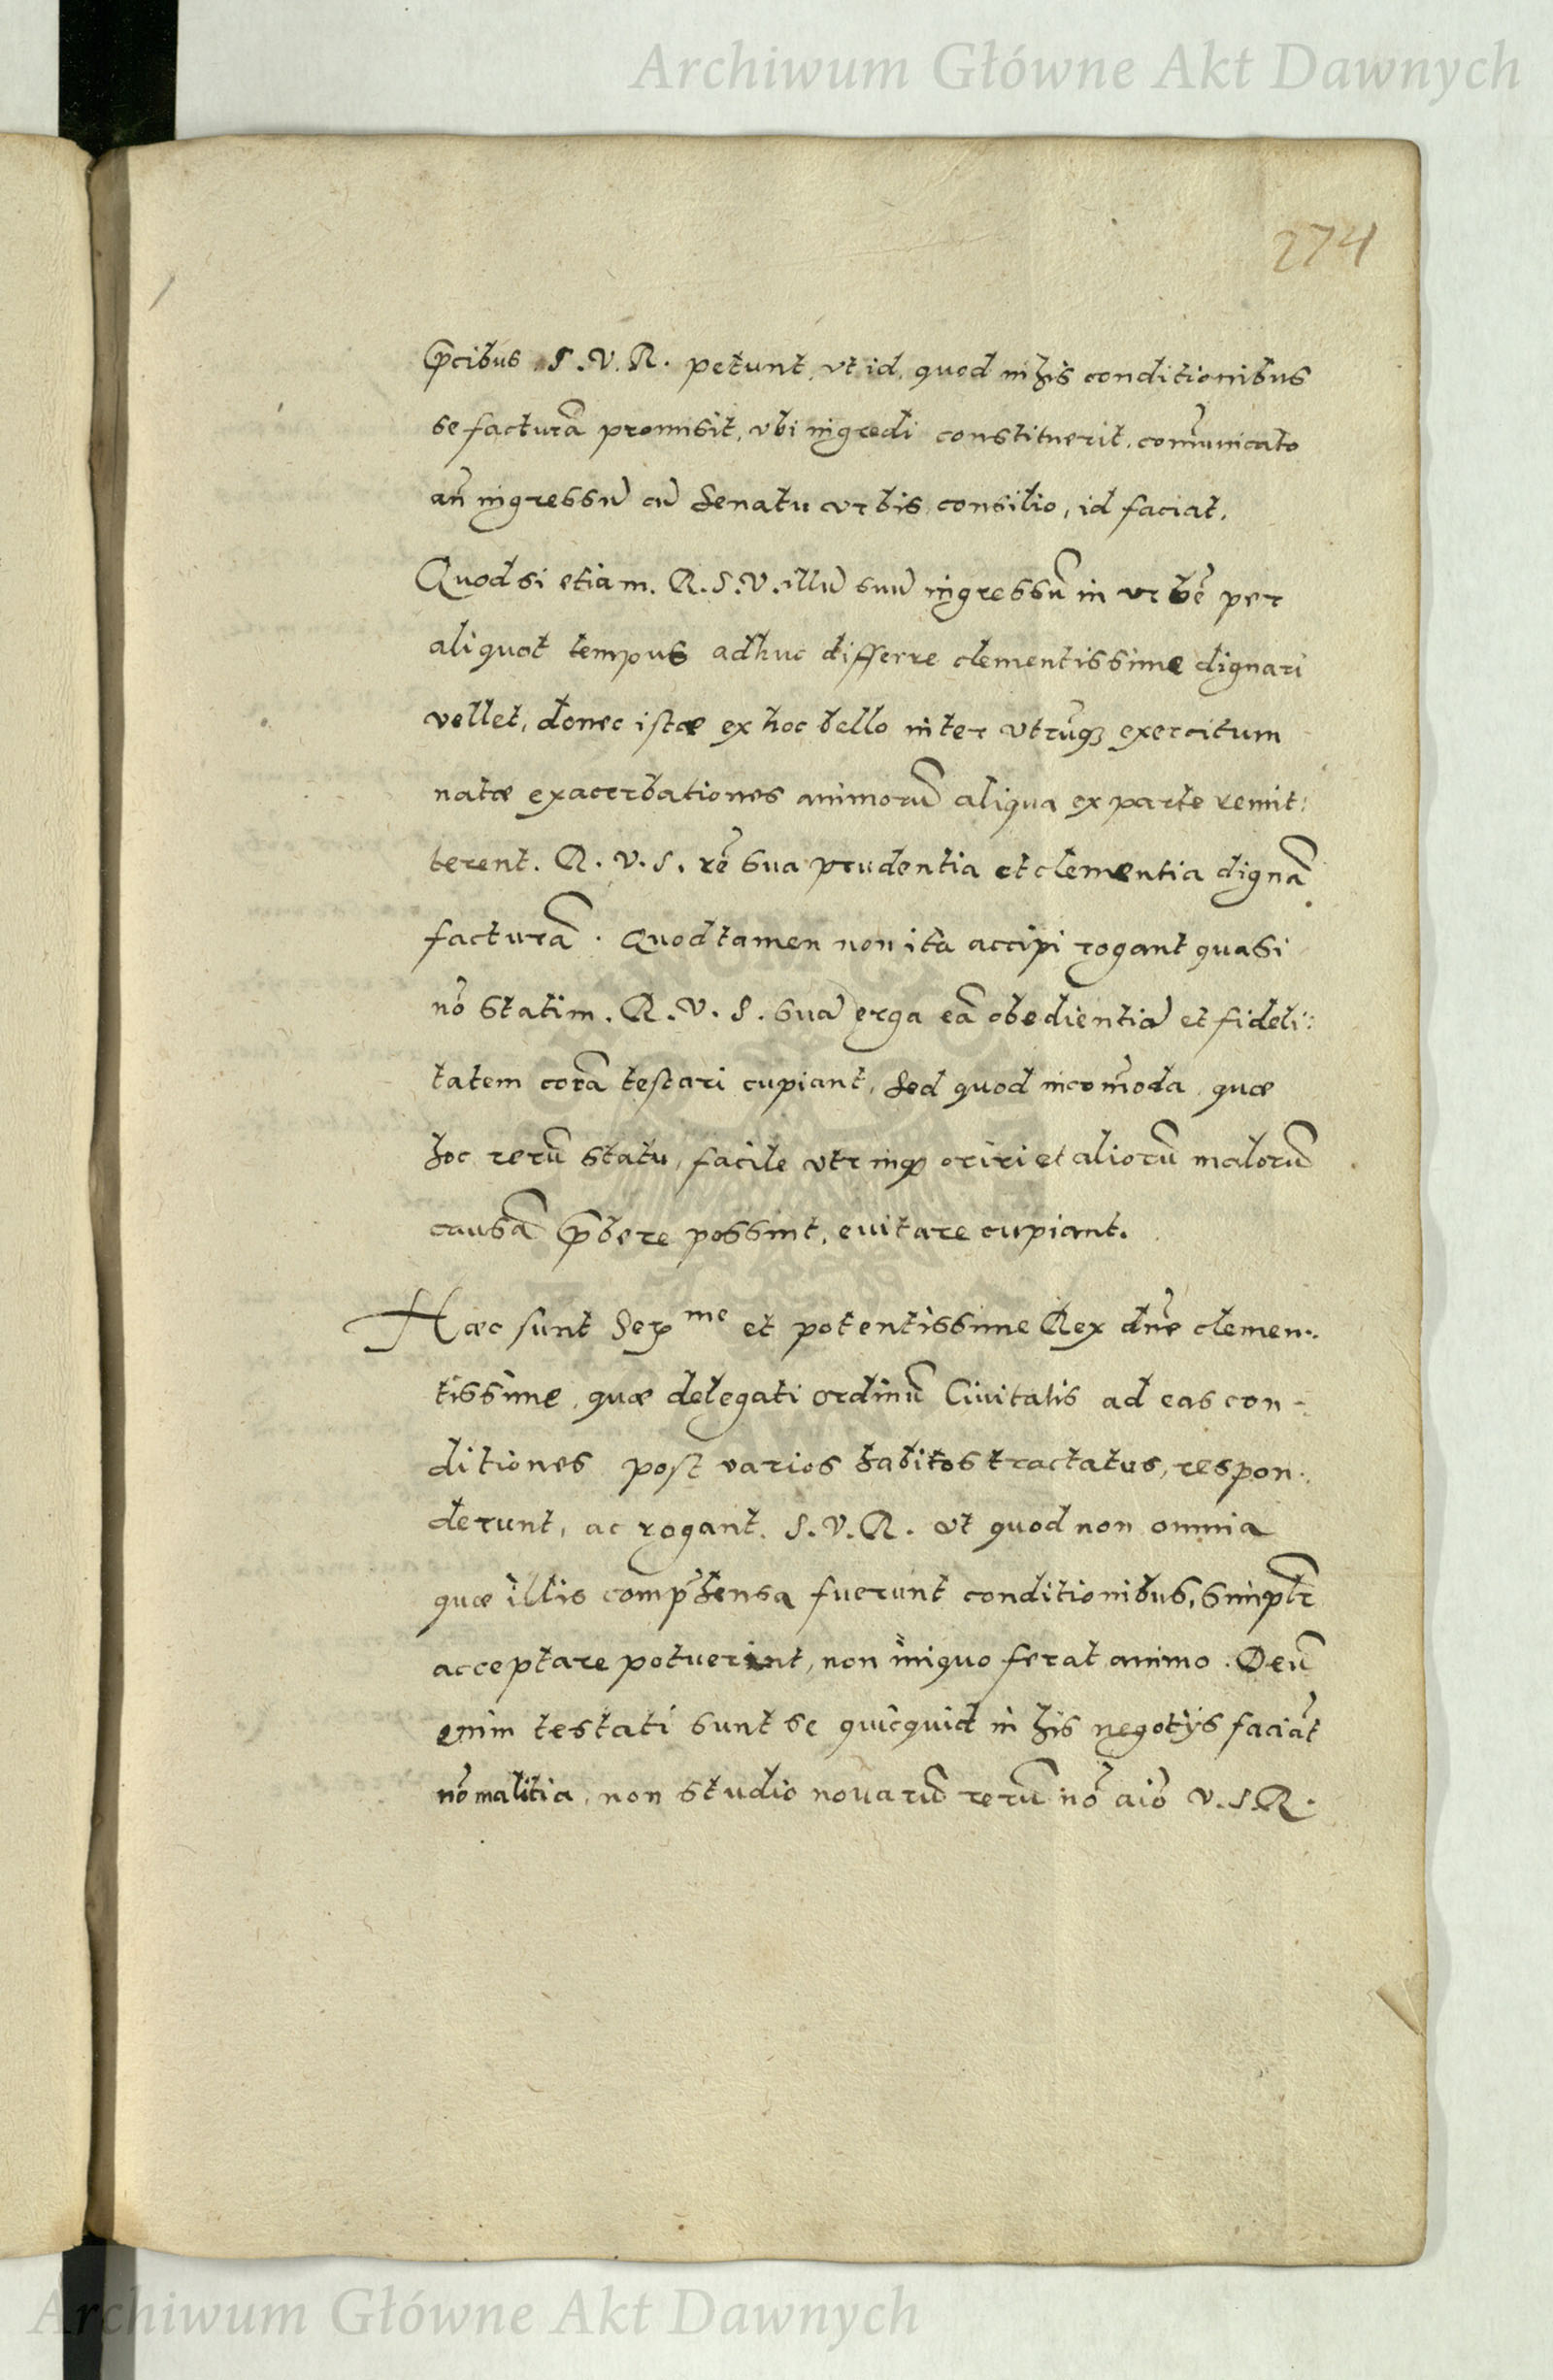 Archiwum Główne Akt Dawnych
274
p̄cibus S.V.R. petunt, vt id, quod in his conditionibus
se facturā promisit, vbi ingredi constituerit, com̄unicato
an̄ ingressū cū Senatu vrbis consilio, id faciat.
Quod si etiam. R.S.V. illū suū ingressū in vrbē per
aliquot tempus adhuc differre clementissime dignari
vellet, donec istæ ex hoc bello inter vtrūq3 exercitum
natæ exacerbationes animorū aliqua ex parte remit:
terent. R.V.S. rē sua prudentia et clementia dignā
facturā. Quod tamen non ità accipi rogant quasi
nō statim. R.V.S. suā erga eā obedientiā et fideli:
tatem corā testari cupiant, Sed quod incom̄oda, quæ
hoc rerū statu, facile vtrinq3 oriri et aliorū malorū
causā p̄bere possint, euitare cupiant.
Hæc sunt Ser me et potentissime Rex dn̄e clemen:
tissime, quæ delegati ordinū Ciuitatis ad eas con-
ditiones post varios habitos tractatus, respon:
derunt, ac rogant. S.V.R. vt quod non omnia
quæ illis comp̄hensa fuerunt conditionibus, simplr̄
acceptare potuerint, non iniquo ferat animo. Deū
enim testati sunt se quicquid in his negotijs faciāt
nō malitia, non studio nouarū rerū nō aīo V.S.R.
Archiwum Główne Akt Dawnych